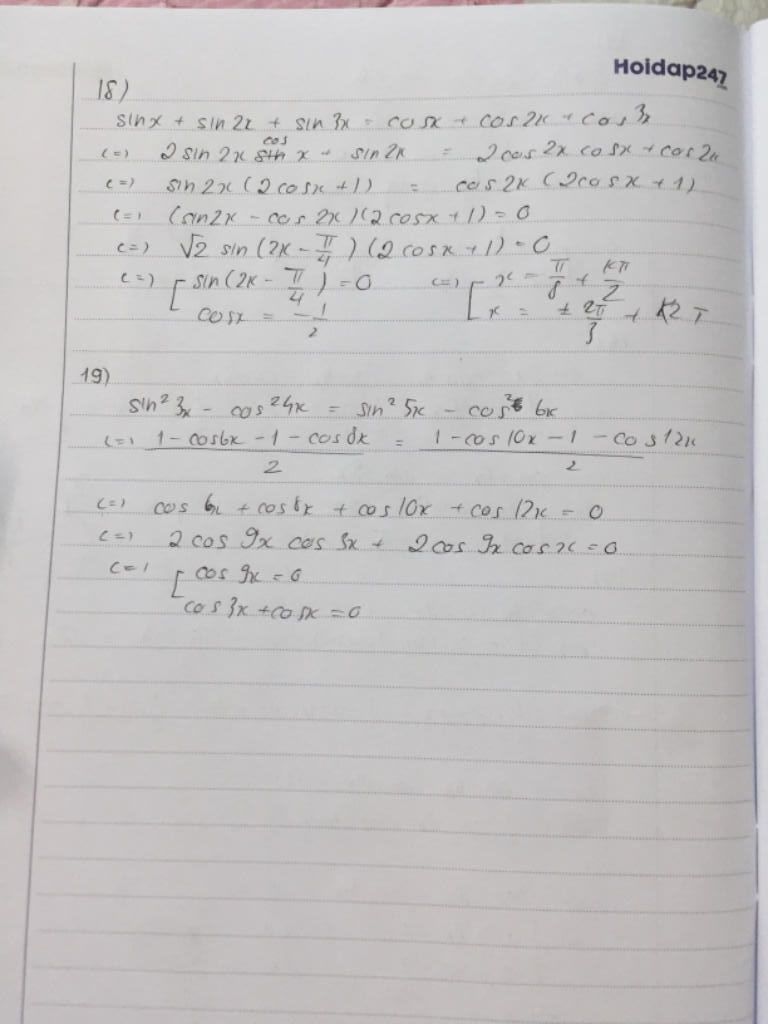 Hoidap247
18)
sinx + sin2x + sin3x = cosx + cos2x + cos3x
<=> 2sin2x cosx + sin2x = 2cos2x cosx + cos2x
<=> sin2x(2cosx+1) = cos2x(2cosx+1)
<=> (sin2x - cos2x)(2cosx+1) = 0
<=> √2 sin(2x - π/4)(2cosx+1) = 0
<=> [ sin(2x - π/4) = 0 <=> [ x = π/8 + kπ/2
cosx = -1/2 x = ± 2π/3 + k2π
19)
sin²3x - cos²4x = sin²5x - cos²6x
<=> (1-cos6x-1-cos8x)/2 = (1-cos10x-1-cos12x)/2
<=> cos6x + cos8x + cos10x + cos12x = 0
<=> 2cos9x cos3x + 2cos9x cosx = 0
<=> [ cos9x = 0
cos3x + cosx = 0